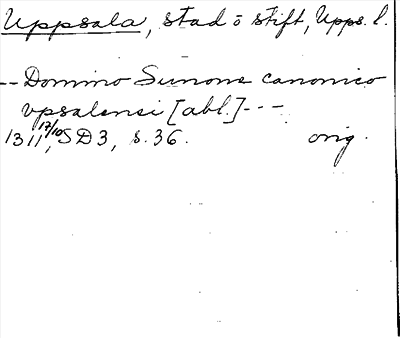 Uppsala, stad o stift, Upps. l.
-- Domino Sunone canonico
vpsalensi [abl.] ---
1311 17/10, SD3, s. 36. orig.